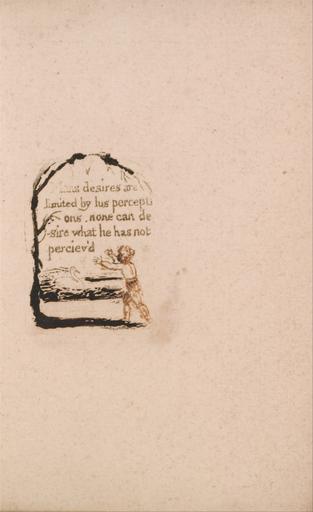 V
Mans desires are
limited by his percepti
ons, none can de
-sire what he has not
perciev'd